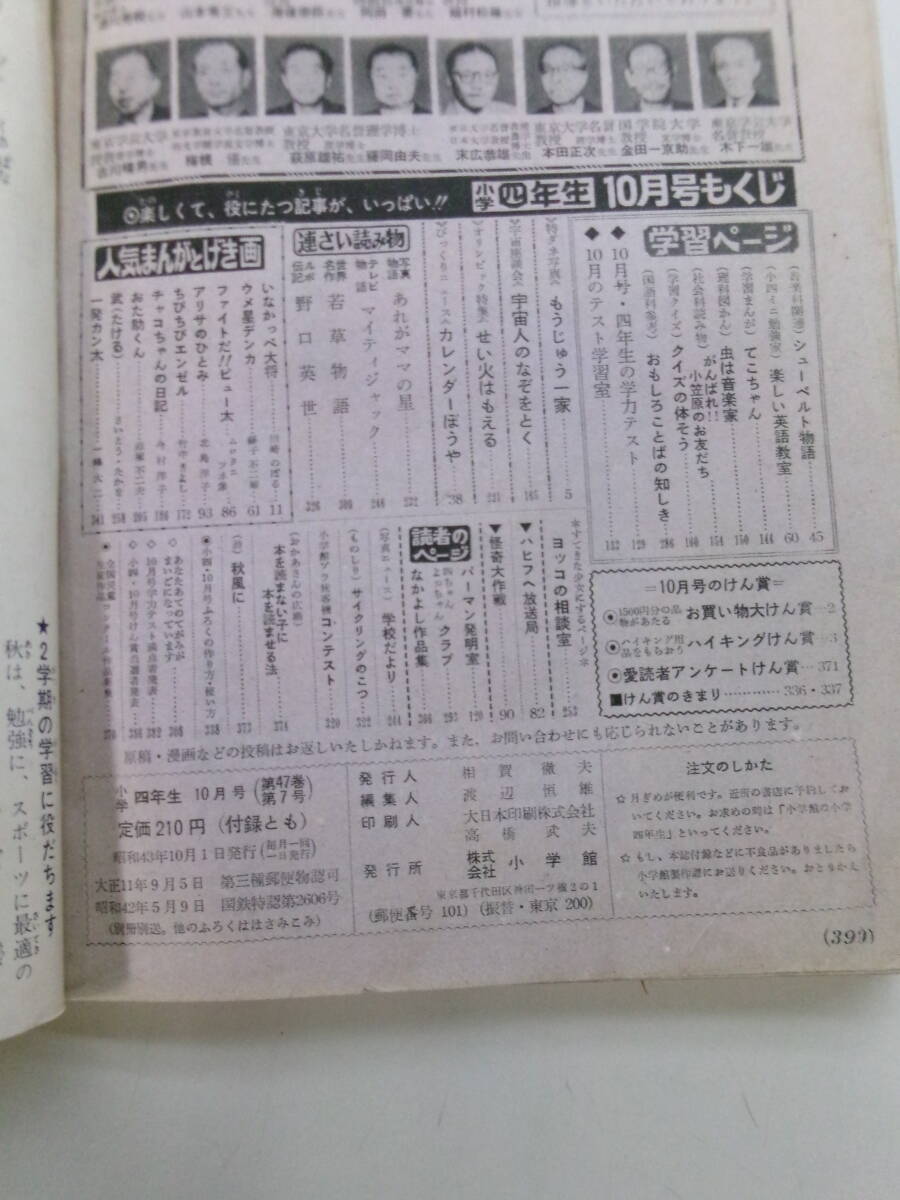 東京学芸大学
東京大学名誉教授
理学博士
萩原雄祐先生
藤岡由夫先生
末広恭雄先生
東京大学名誉教授
理学博士
本田正次先生
国学院大学教授
文学博士
金田一京助先生
東京学芸大学名誉教授
木下一雄先生
◉楽しくて、役にたつ記事が、いっぱい!!
小学四年生 10月号もくじ
学習ページ
シューベルト物語 45
(小四ミニ勉強室) 楽しい英語教室 60
(学習まんが) てこちゃん 144
(理科図かん) 虫は音楽家
(社会科読み物) がんばれ!! 小笠原のお友だち 154
(学園クイズ) クイズの体そう 160
(国語科参考) おもしろことばの知しき 286
◆10月号・四年生の学力テスト 129
◆10月のテスト学習室 132
(特ダネ写真) もうじゅう一家 5
(宇宙座談会) 宇宙人のなぞをとく
(オリンピック特集) せい火はもえる
(びっくりニュース) カレンダーぼうや 38
連さい読み物
写真物語 あれがママの星
テレビ物語 マイティジャック
世界名作 若草物語
ルポ伝記 野口英世
人気まんがとげき画
いなかっぺ大将 川崎のぼる 11
ウメ星デンカ 藤子不二雄 61
ファイトだ!!ピュー太 ムロタニ・ツネ象 86
アリサのひとみ 北島洋子 93
ちびちびエンゼル 172
チャコちゃんの日記 今村洋子 186
おた助くん 赤塚不二夫
武(たける) さいとう・たかを
一発カン太 一峰大二
*すてきな少女にするページ*
ヨッコの相談室 253
▼ハヒフヘ放送局 82
▼怪奇大作戦 90
読者のページ
パーマン発明室 120
四ちゃんよっちゃんクラブ
なかよし作品集
(写真ニュース) 学校だより 244
(ものしり) サイクリングのこつ 322
小学館プラ板客機コンテスト 320
(おかあさんの広場)
本を読まない子に
本を読ませる法 374
(詩) 秋風に 373
●小四・10月号ふろくの作り方・使い方 338
◇あなたあてのてがみがまいどになっています
◇10月号学力テスト満点発表
◇小四・10月号けん賞当選者発表
=10月号のけん賞=
◉1500円分の品物があたる お買い物大けん賞…2
◉ハイキング用品をもらおう ハイキングけん賞…3
◉愛読者アンケートけん賞…371
■けん賞のきまり…………336・337
原稿・漫画などの投稿はお返しいたしかねます。また、お問い合わせにも応じられないことがあります。
小学四年生 10月号(第47巻第7号)
定価210円(付録とも)
昭和43年10月1日発行(毎月一回一日発行)
大正11年9月5日 第三種郵便物認可
昭和42年5月9日 国鉄特認第2606号
(別冊別送。他のふろくははさみこみ)
発行人 相賀徹夫
編集人 渡辺恒雄
印刷人 大日本印刷株式会社
高橋武夫
発行所 株式会社 小学館
東京都千代田区神田一ツ橋2の1
(郵便番号101)(振替・東京200)
注文のしかた
☆月ぎめが便利です。近所の書店に予約しておいてください。お求めの時は「小学館の小学四年生」といってください。
☆もし、本誌付録などに不良品がありましたら小学館製作課にお送りください。おとりかえいたします。
(399)
★2学期の学習に役だちます
秋は、勉強に、スポーツに最適の